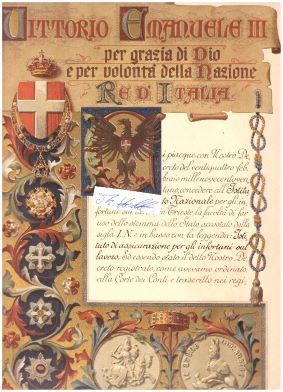 VITTORIO EMANUELE III
per grazia di Dio
e per volontà della Nazione
RE D'ITALIA
i piacque con Nostro De
creto del ventiquattro feb
braio millenovecento ven
tuno, concedere all'Istitu
to Nazionale per gli in
fortuni sul in Trieste la facoltà di far
uso dello stemma dello Stato accostato dalla
sigla I.N. e in basso con la leggenda: Isti
tuto N. assicurazione per gli infortuni sul
lavoro. Ed essendo stato il detto Nostro De
creto registrato, come avevamo ordinato,
alla Corte dei Conti e trascritto nei regi,